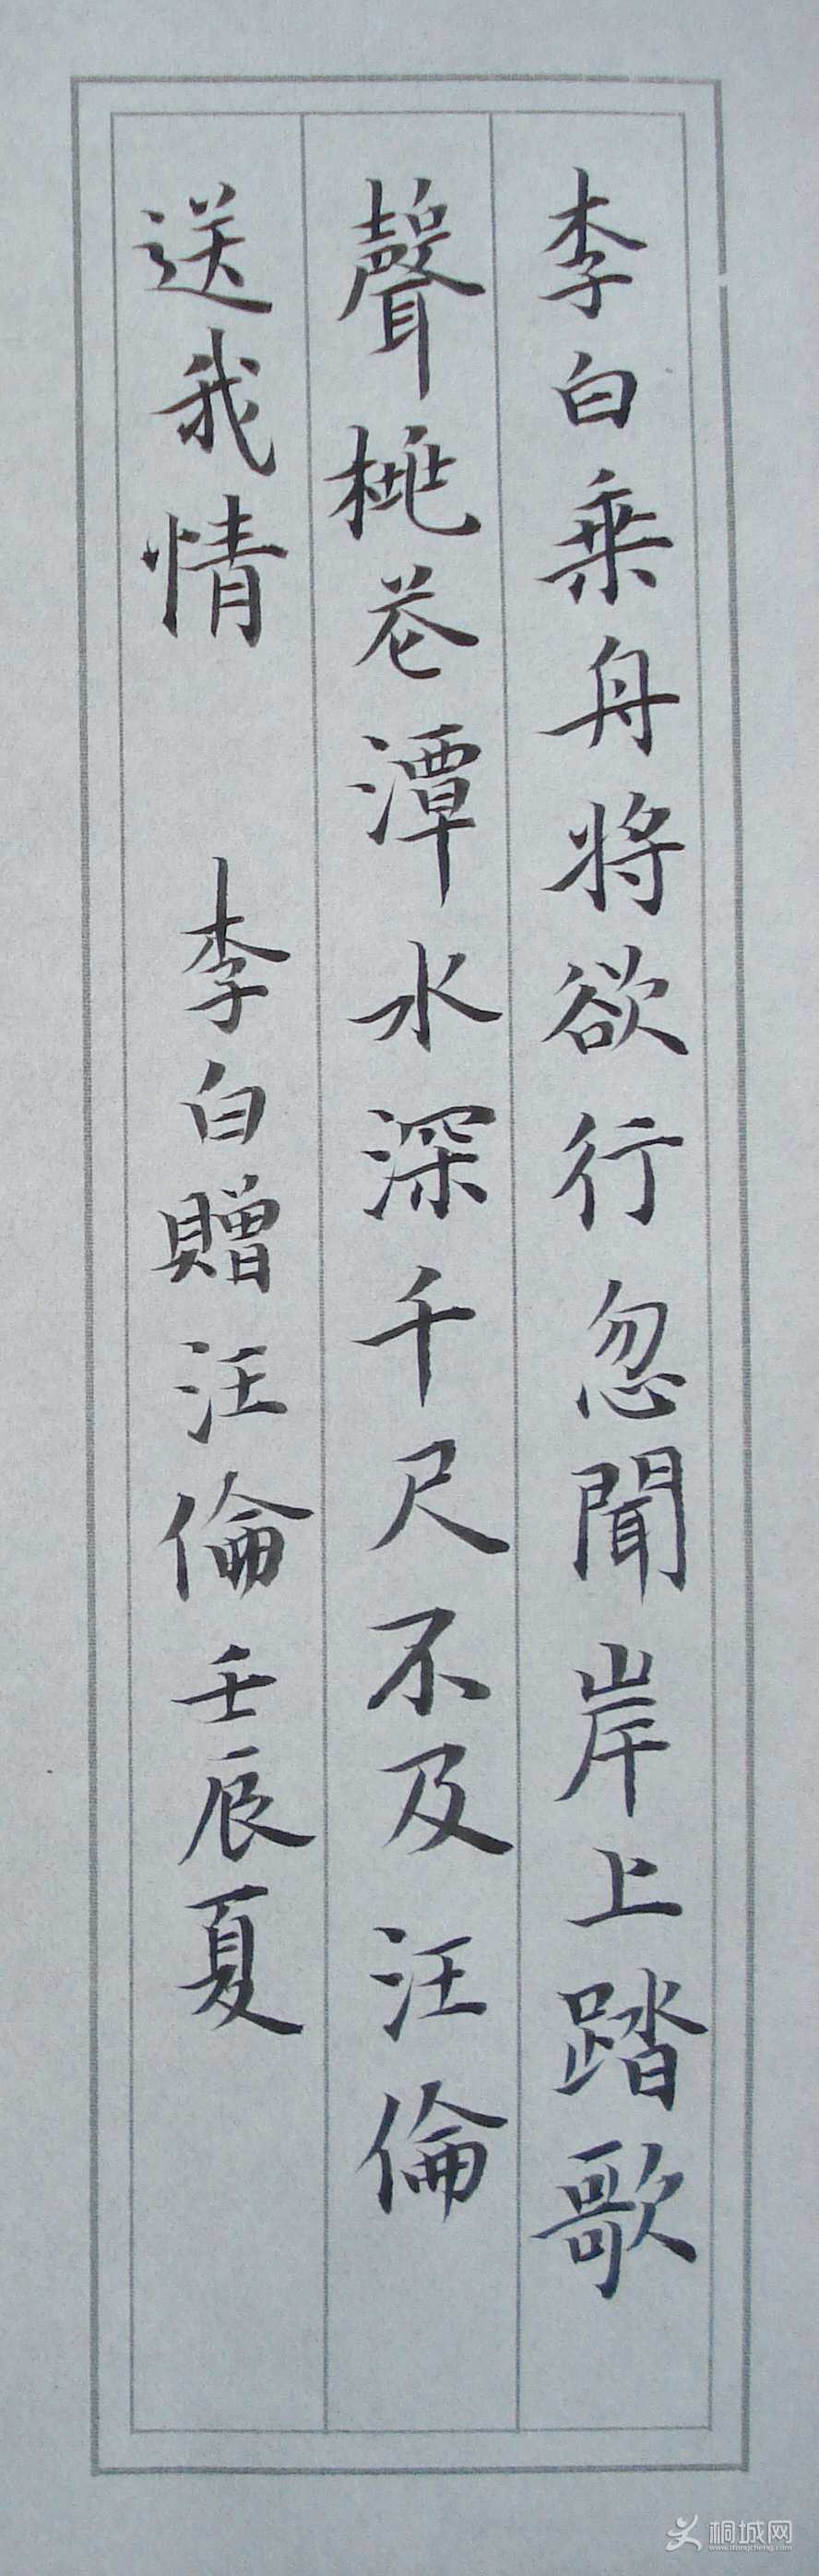 李白乘舟将欲行忽聞岸上踏歌
聲桃花潭水深千尺不及汪倫
送我情 李白贈汪倫壬辰夏
桐城网
www.itongcheng.com